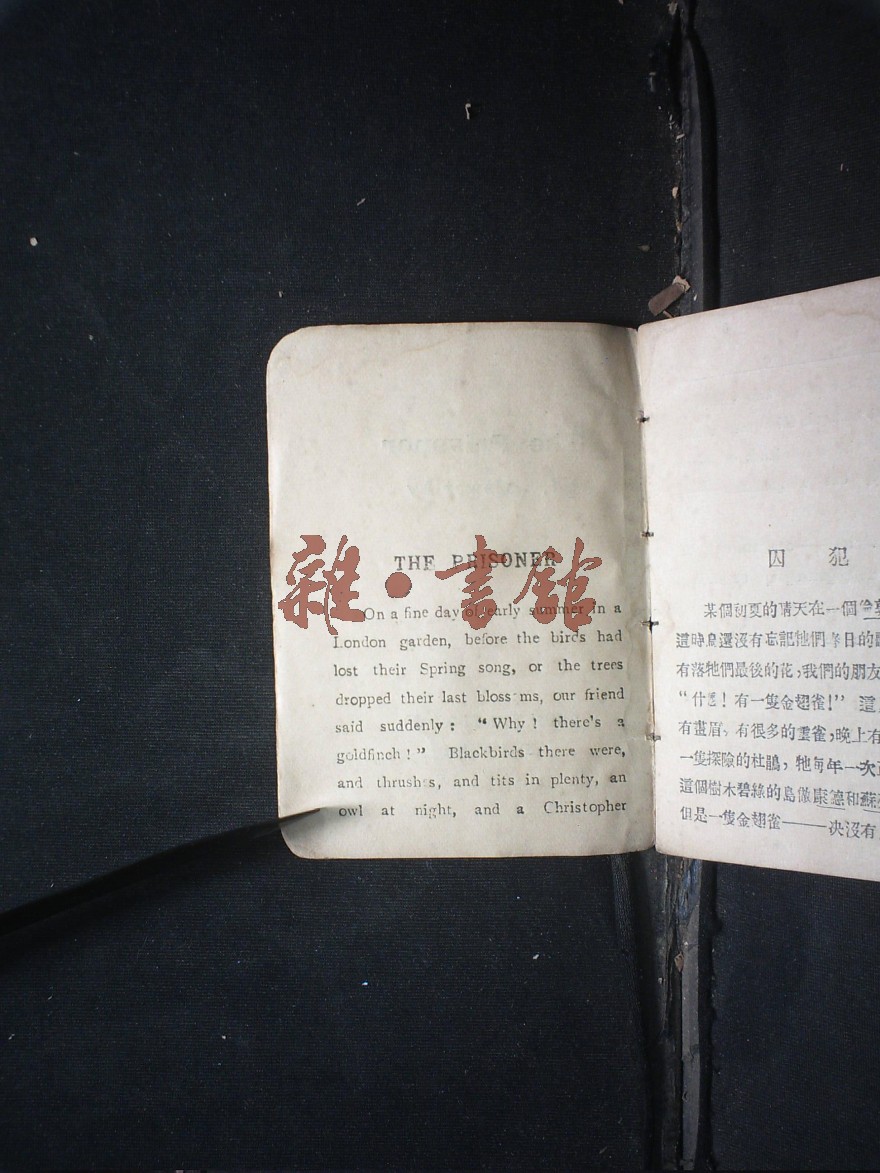 THE PRISONER
On a fine day of early summer in a
London garden, before the birds had
lost their Spring song, or the trees
dropped their last blossoms, our friend
said suddenly: “Why! there's a
goldfinch!” Blackbirds there were,
and thrushes, and tits in plenty, an
owl at night, and a Christopher
雜·書館
囚犯
某個初夏的晴天在一個
這時鳥還沒有忘記牠們春日的
有落牠們最後的花；我們的朋友
“什麽！有一隻金翅雀！” 這
有畫眉，有很多的雲雀，晚上有
一隻探險的杜鵑，牠每年一次
這個樹木碧綠的島做康德和
但是一隻金翅雀——决沒有